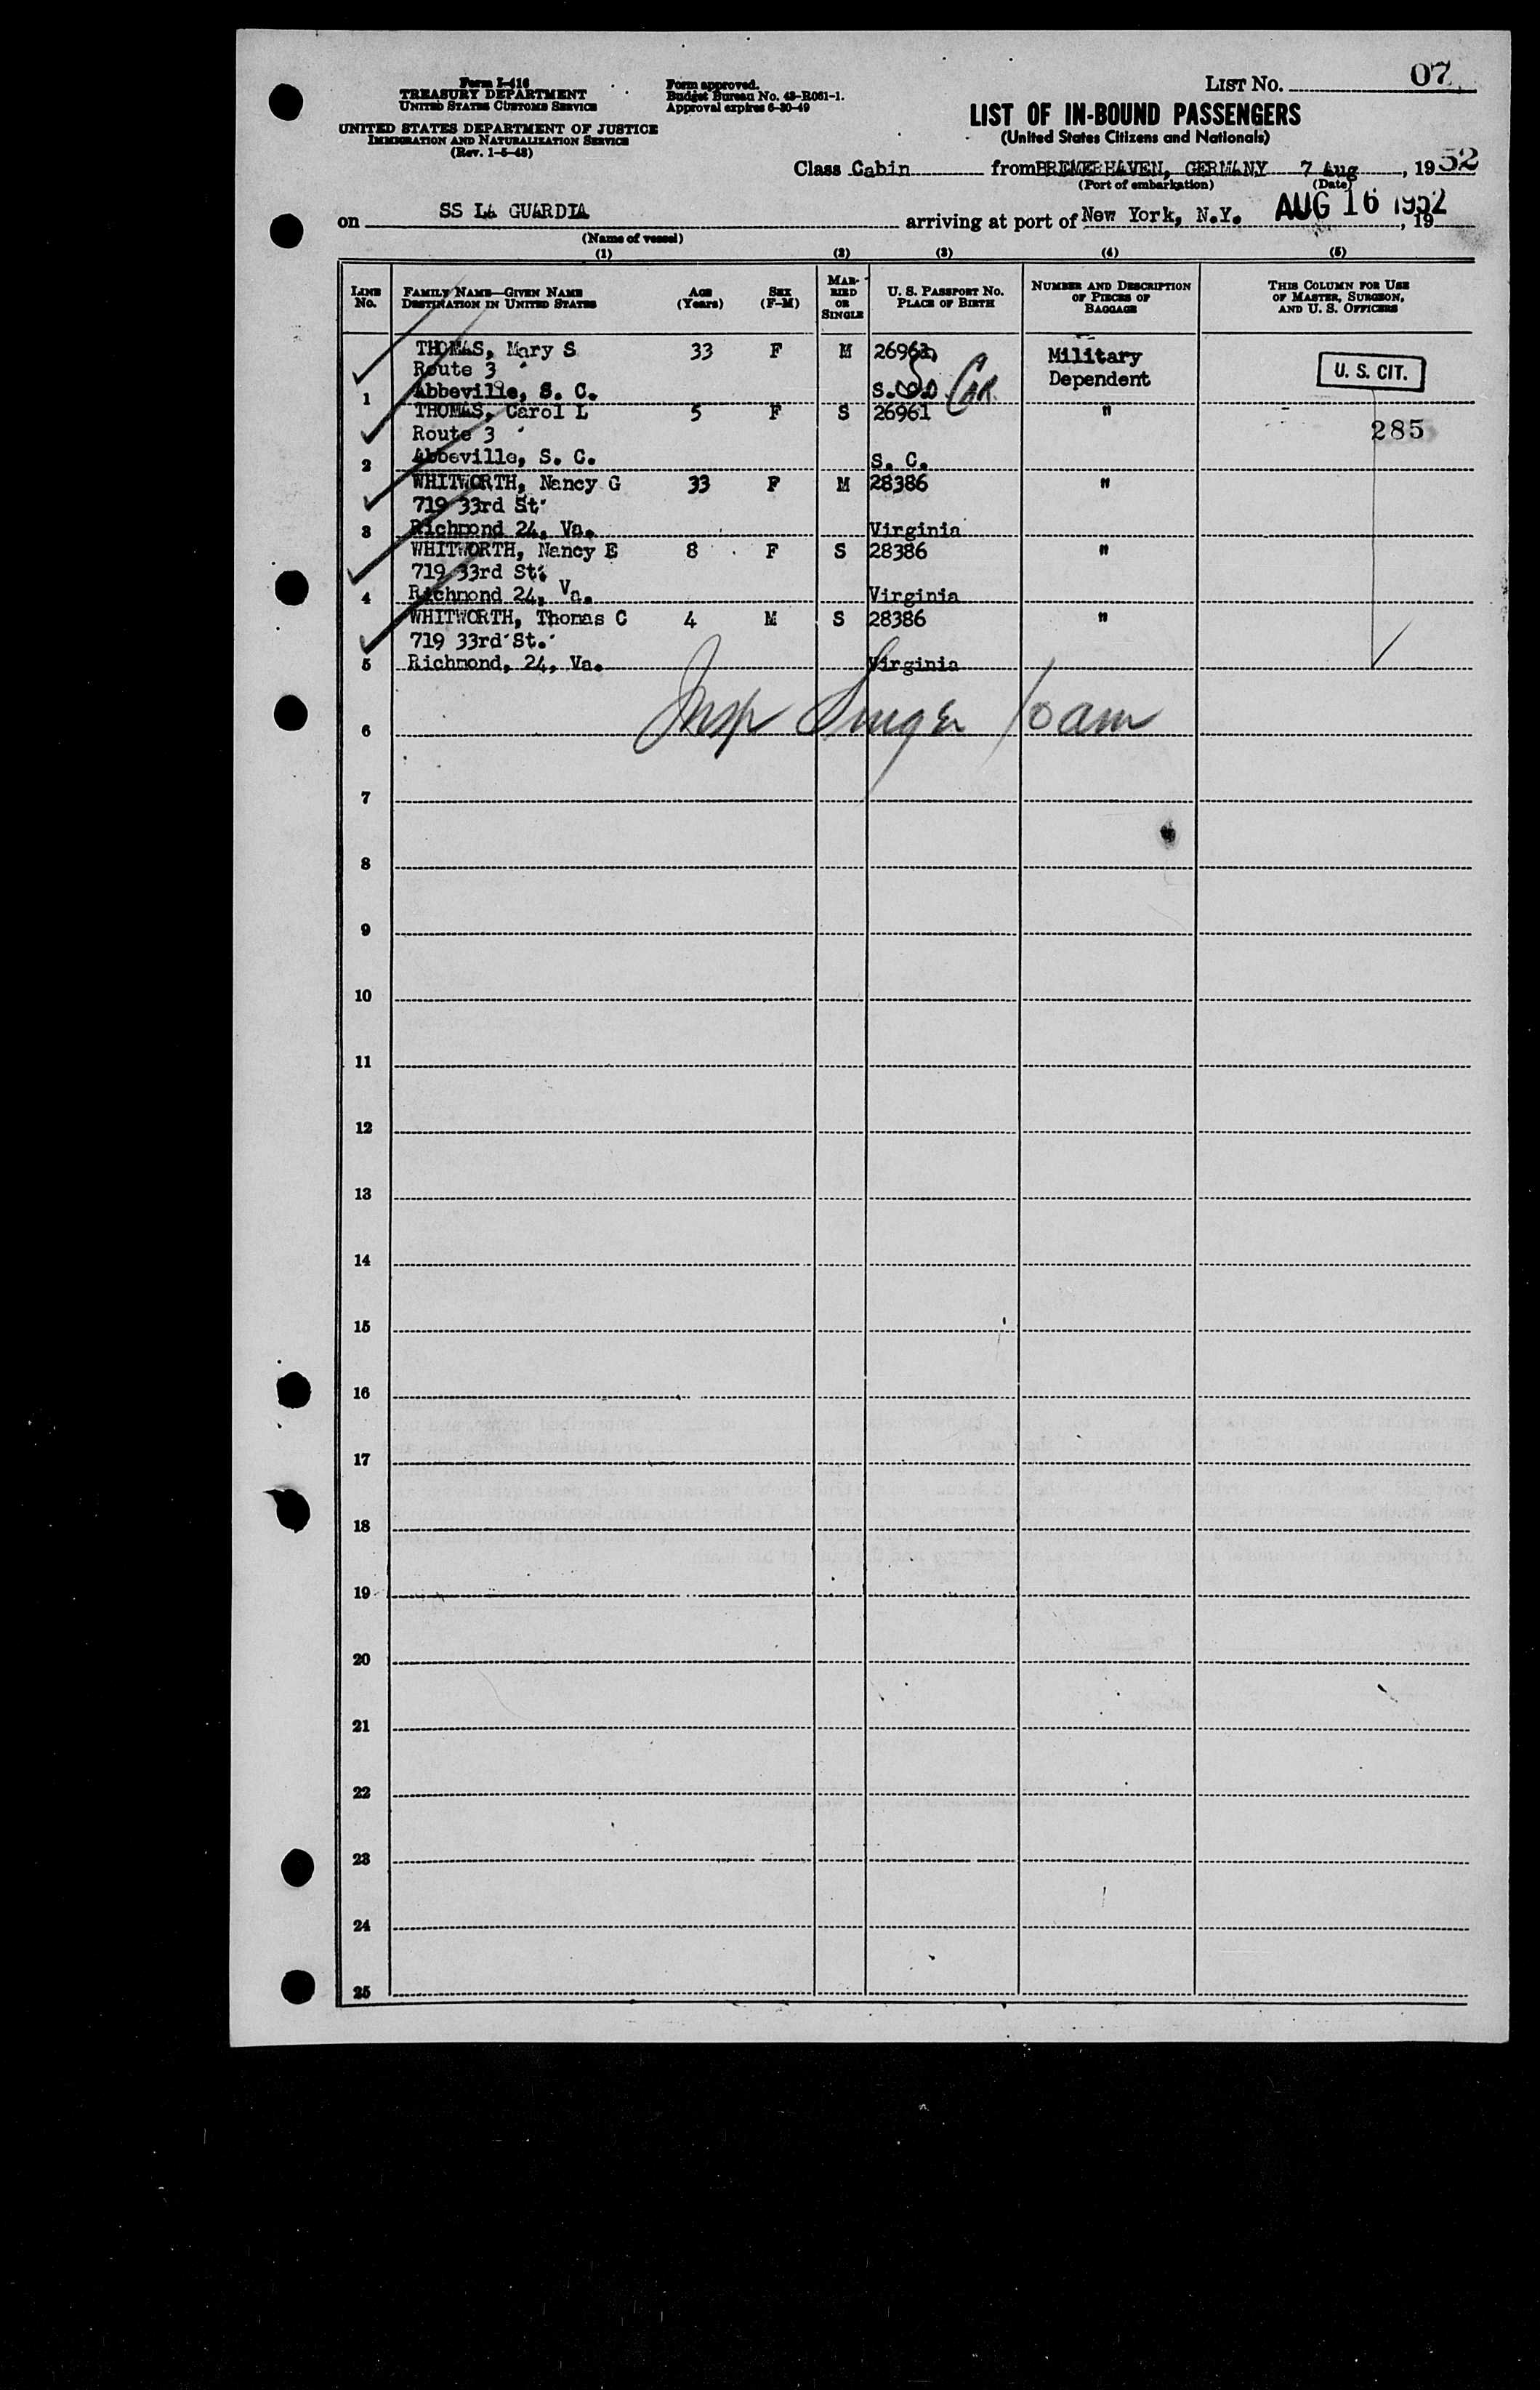 Form I-416
TREASURY DEPARTMENT
UNITED STATES CUSTOMS SERVICE
UNITED STATES DEPARTMENT OF JUSTICE
IMMIGRATION AND NATURALIZATION SERVICE
(Rev. 1-5-48)
Form approved.
Budget Bureau No. 43-R061-1.
Approval expires 6-30-49
LIST NO. 07
LIST OF IN-BOUND PASSENGERS
(United States Citizens and Nationals)
Class Cabin from BREMERHAVEN, GERMANY 7 Aug, 1952
(Port of embarkation) (Date)
on SS LA GUARDIA arriving at port of New York, N.Y. AUG 16 1952, 19
(Name of vessel)
(1) (2) (3) (4) (5)
LINE No.
FAMILY NAME—GIVEN NAME
DESTINATION IN UNITED STATES
AGE (Years)
SEX (F-M)
MARRIED OR SINGLE
U. S. PASSPORT NO.
PLACE OF BIRTH
NUMBER AND DESCRIPTION OF PIECES OF BAGGAGE
THIS COLUMN FOR USE OF MASTER, SURGEON, AND U. S. OFFICERS
THOMAS, Mary S 33 F M 26961 Military
Route 3 Dependent U. S. CIT.
1 Abbeville, S. C. S. Car.
THOMAS, Carol L 5 F S 26961 "
Route 3 285
2 Abbeville, S. C. S. C.
WHITWORTH, Nancy G 33 F M 28386 "
719 33rd St.
3 Richmond 24, Va. Virginia
WHITWORTH, Nancy E 8 F S 28386 "
719 33rd St.
4 Richmond 24, Va. Virginia
WHITWORTH, Thomas C 4 M S 28386 "
719 33rd St.
5 Richmond, 24, Va. Virginia
Insp Singer 10 am
6
7
8
9
10
11
12
13
14
15
16
17
18
19
20
21
22
23
24
25